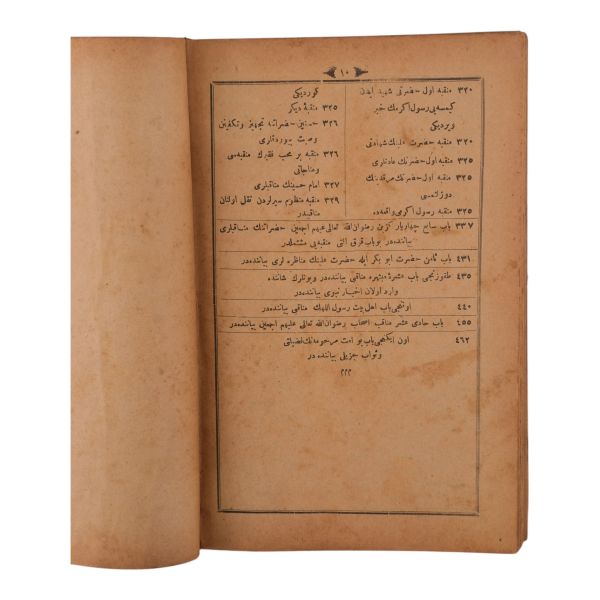 ١٠
٣٢٠ منقبه اول حضرتی شهید ایدن
كیمسه یی رسول اكرمك خبر
ویردیكی
٣٢٠ منقبه حضرت علینك شهادتی
٣٢٥ منقبه اول حضرتك عادتلری
٣٢٥ منقبه اول حضرتك مرقدینك
٣٢٥ منقبه رسول اكرمی واقعه ده
كوردیكی
٣٢٥ منقبهٔ دیكر
٣٢٦ حسنین حضراتنه تجهیز وتكفینن
وصیت بیوردقلری
٣٢٦ منقبه بر محب فقیرك منقبه سی
ومناجاتی
٣٢٧ امام حسینك مناقبلری
٣٢٩ منقبه منظوم سیرلردن نقل اولنان
مناقبدر
٣٣٧ باب سابع چهاریار كزین رضوان الله تعالی علیهم اجمعین حضراتنك مناقبلری
بیاننده در بو باب قرق التی منقبه یی مشتملدر
٤٣١ باب ثامن حضرت ابو بكر ایله حضرت علینك مناظره لری بیاننده در
٤٣٥ طقوزنجی باب عشرهٔ مبشره مناقبی بیاننده در وبونلرك شاننده
وارد اولان اخبار نبوی بیاننده در
٤٤٠ اوننجی باب اهل بیت رسول اللهك مناقبی بیاننده در
٤٥٥ باب حادی عشر مناقب اصحاب رضوان الله تعالی علیهم اجمعین بیاننده در
٤٦٢ اون ایكنجی باب بو امت مرحومه نك فضیلتی
وثواب جزیلی بیاننده در